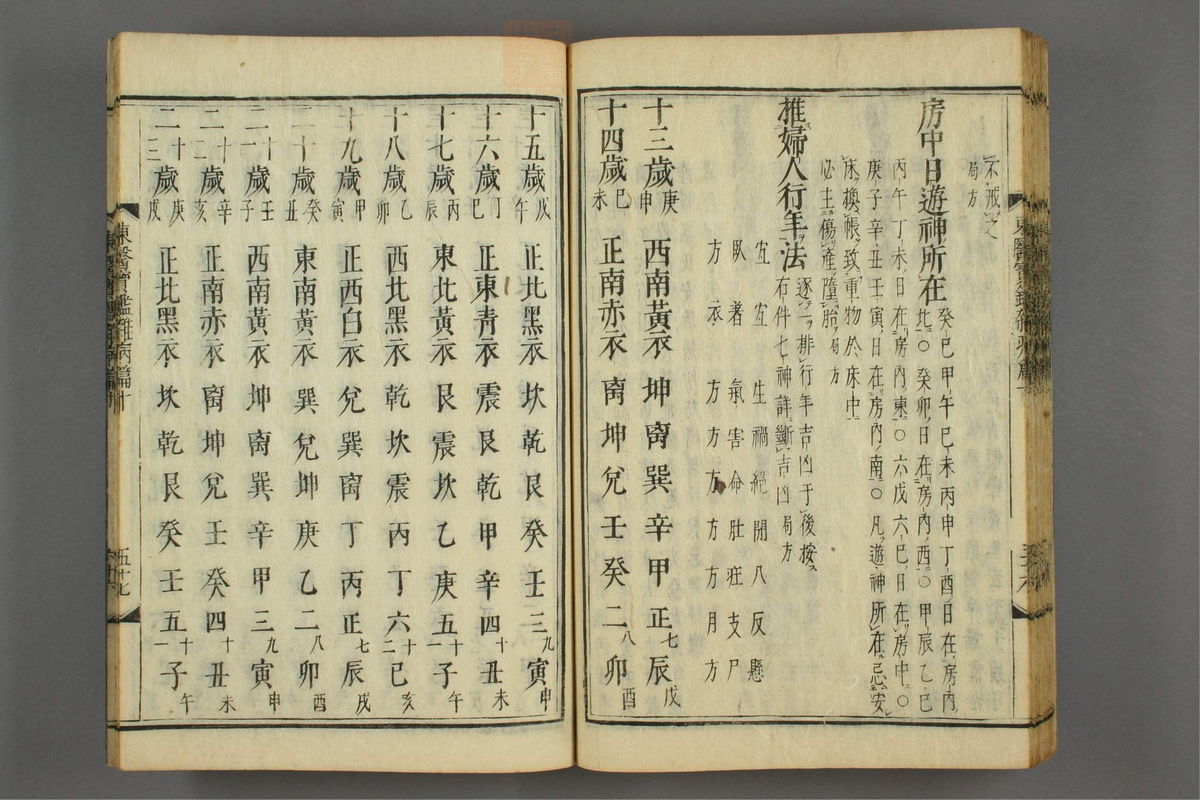 不戒之
局方
房中日遊神所在
癸巳甲午巳未丙申丁酉日在房內
北○癸卯日在房內西○甲辰乙巳
丙午丁未日在房內東○六戊六己日在房中○
庚子辛丑壬寅日在房內南○凡遊神所在忌安
床換帳致重物於床中
必主傷產墮胎局方
推婦人行年法
逐一排行年吉凶于後按
右件七神詳斷吉凶局方
宜宜生禍絕閉八反懸
臥著氣害命肚壯支尸
方衣方方方方方月方
十三歲庚申西南黃衣坤离巽辛甲正七辰戌
十四歲己未正南赤衣离坤兌壬癸二八卯酉
十五歲戊午正北黑衣坎乾艮癸壬三九寅申
十六歲丁巳正東青衣震艮乾甲辛四十丑未
十七歲丙辰東北黃衣艮震坎乙庚五十一子午
十八歲乙卯西北黑衣乾坎震丙丁六十二巳亥
十九歲甲寅正西白衣兌巽离丁丙正七辰戌
二十歲癸丑東南黃衣巽兌坤庚乙二八卯酉
二十一歲壬子西南黃衣坤离巽辛甲三九寅申
二十二歲辛亥正南赤衣离坤兌壬癸四十丑未
二十三歲庚戌正北黑衣坎乾艮癸壬五十一子午
東醫寶鑑雜病篇十
五十七